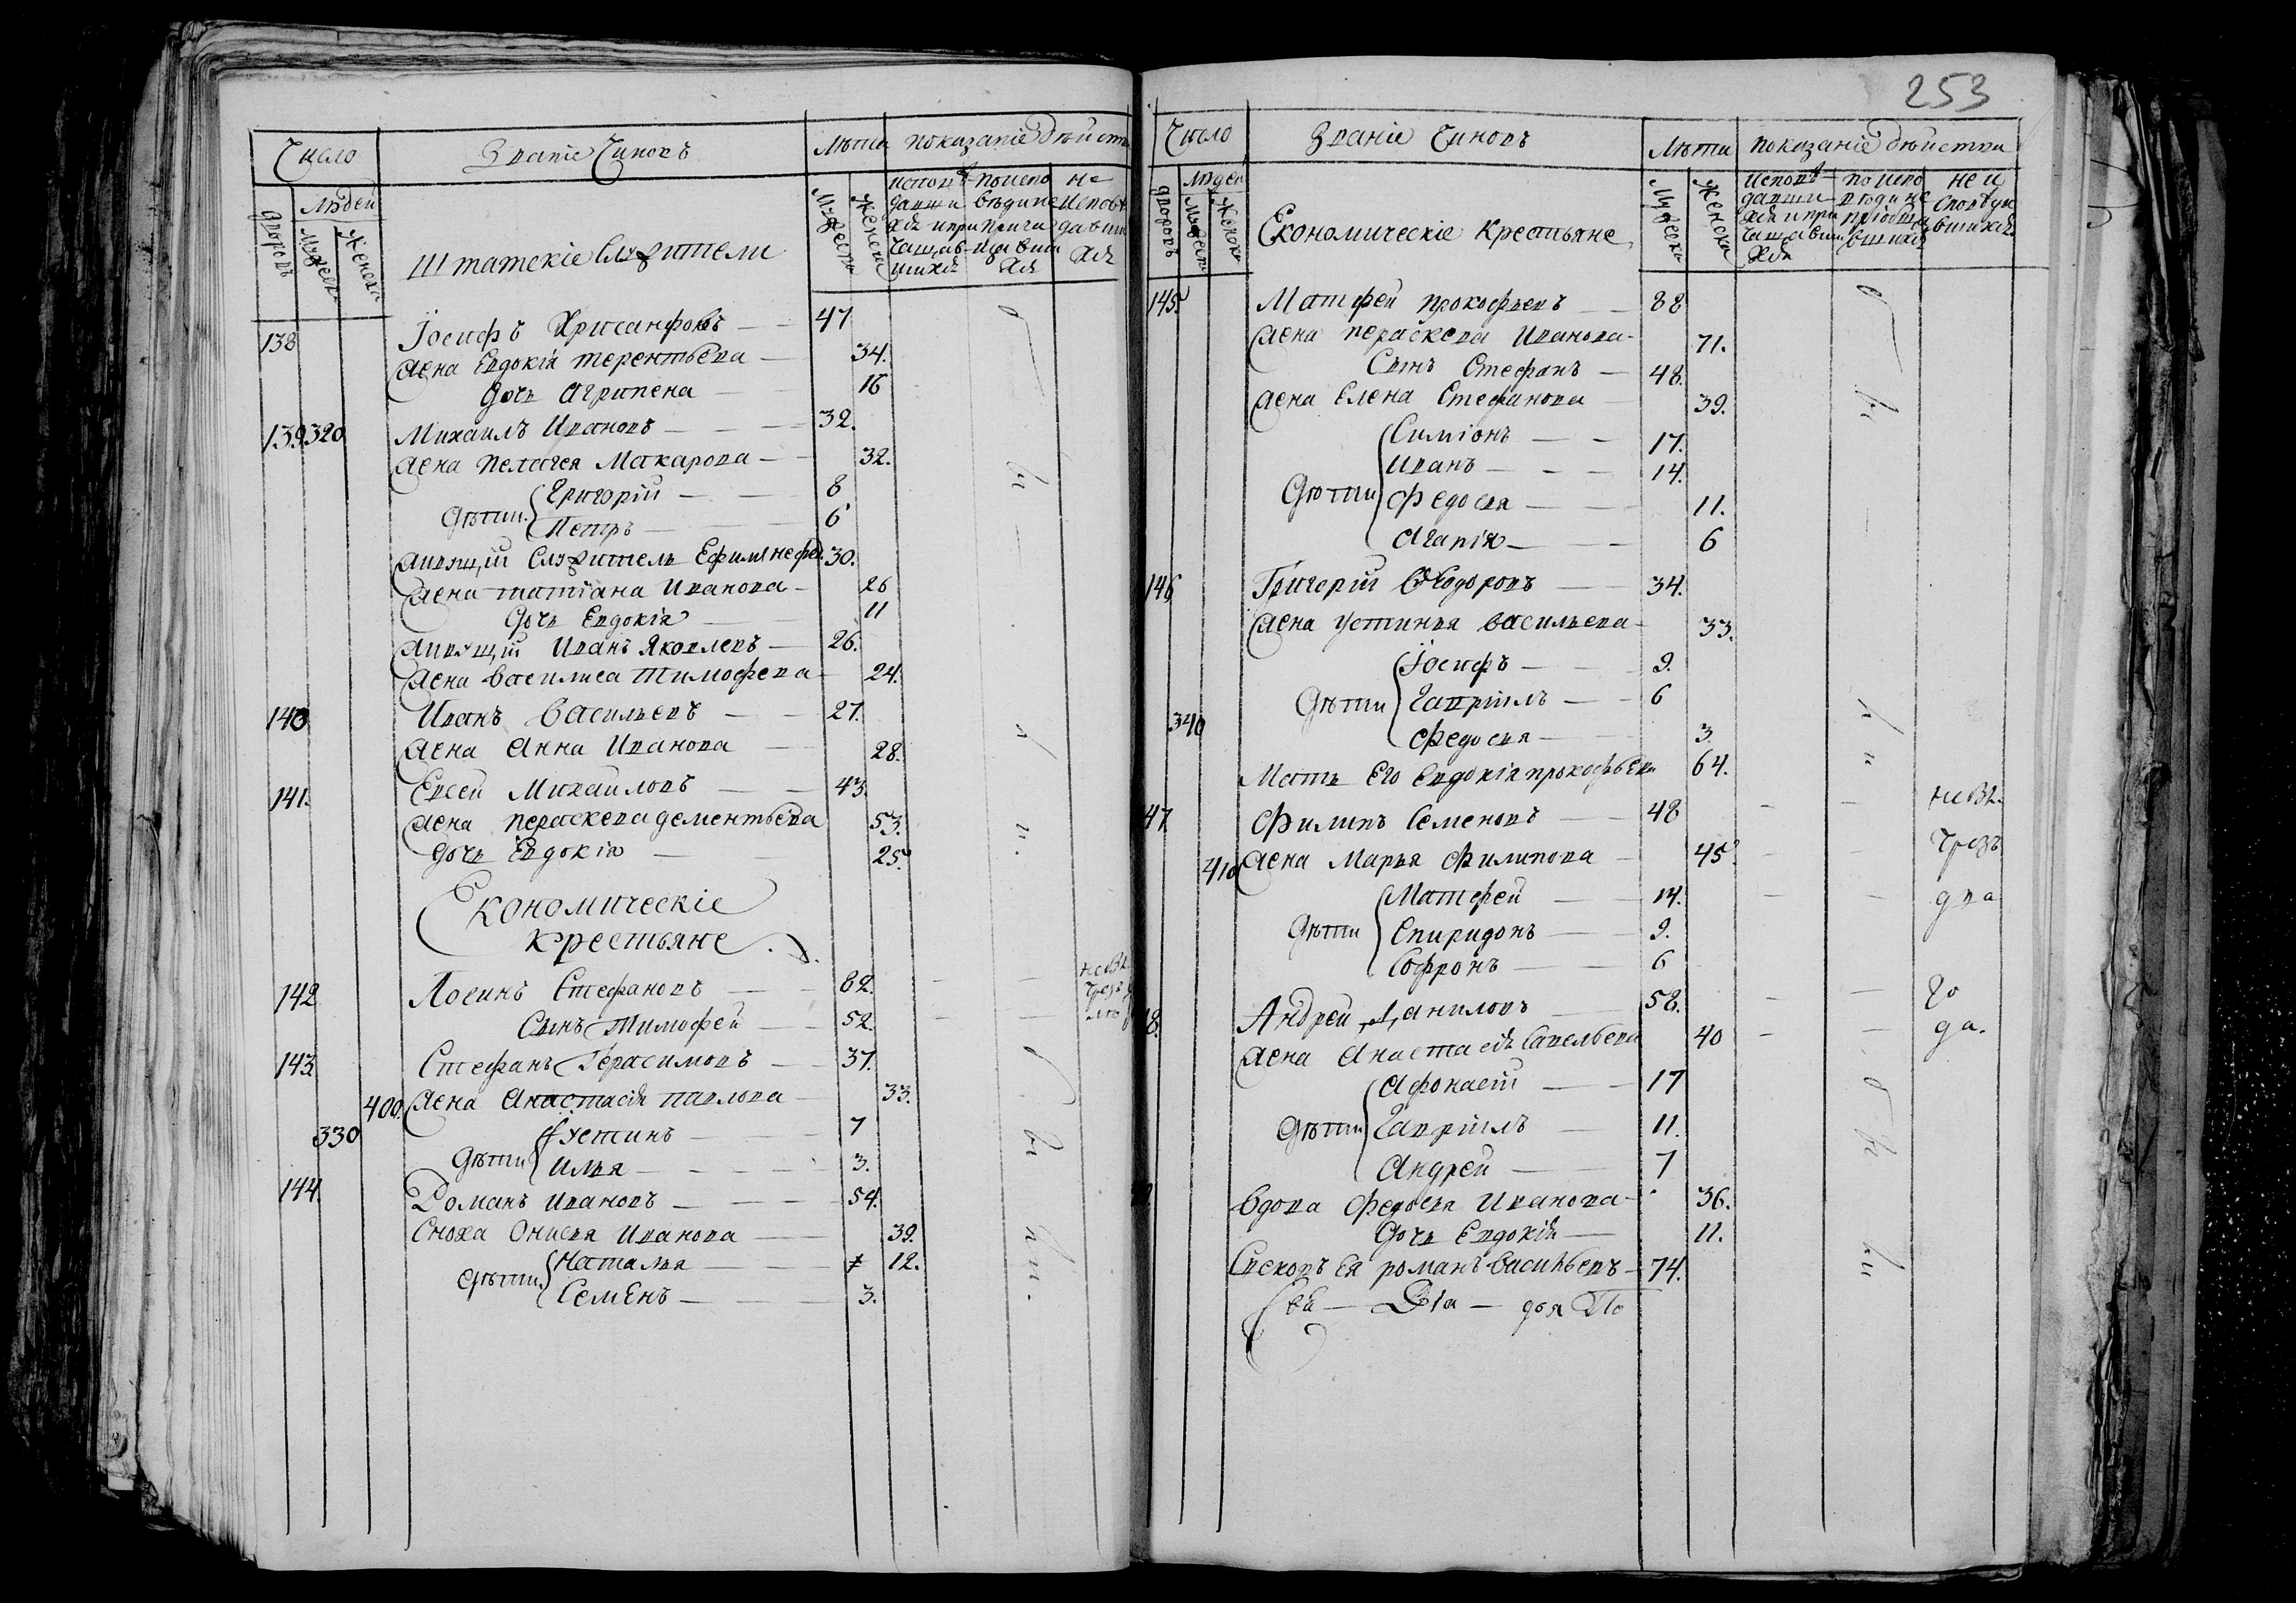 Число Званіе Чиновъ Лѣта показаніе дѣйств
дворовъ Людей Мужеска Женска Штатскіе Служители Мужеска Женска исповѣдавшихся и причащавшихся исповѣдавшихся не причащавшихся не исповѣдавшихся
138 Іосифъ Хрисанфовъ 47
Жена Евдокія терентьева 34.
Дочь Агрипена 16
139 320 Михаилъ Ивановъ 32.
Жена Пелагея Макарова 32.
Дѣти Григорій 8
Петръ 6
Живущій Служитель Ефимъ 30.
Жена татіана Иванова 26
Дочь Евдокія 11
Живущій Иванъ Яковлевъ 26.
Жена василиса тимофева 24.
140 Иванъ Васильевъ 27.
Жена Анна Иванова 28.
141. Евсей Михаиловъ 43.
Жена пераскева дементьева 53.
Дочь Евдокія 25.
Економическіе
крестьяне.
142 Логинъ Стефановъ 82.
Сынъ Тимофей 52.
143 Стефанъ Герасимовъ 37.
400. Жена Анастасія павлова 33.
330 Дѣти Устинъ 7
Илья 3.
144. Романъ Ивановъ 54.
Сноха Онисья Иванова 39.
Дѣти Наталья 12.
Семенъ 3.
253
Число Званіе Чиновъ Лѣта показаніе дѣйства
дворовъ Людей Мужеска Женска Економическіе крестьяне Мужеска Женска
145. Матфей прокофьевъ 88
Жена пераскева Иванова 71.
Сынъ Стефанъ 48.
Жена Елена Стефанова 39.
Симіонъ 17.
Иванъ 14.
Дѣти Федосья 11.
Агапія 6
146 Григорій Ѳеодоровъ 34.
Жена устинья васильева 33.
Іосифъ 9.
Дѣти Гавріилъ 6
340 Федосья 3
Мать Его Евдокія прокофьева 64.
47 Филипъ Семеновъ 48
410 Жена Марья Филипова 45. Чрезъ
Матфей 14. два
Дѣти Спиридонъ 9.
Софронъ 6
8. Андрей Даниловъ 58. го
Жена Анастасія Савельева 40 да.
Афонасій 17
Дѣти Гавріилъ 11.
Андрей 7
Вдова Федосья Иванова 36.
Дочь Евдокія 11.
Свекоръ Ея романъ васильевъ 74.